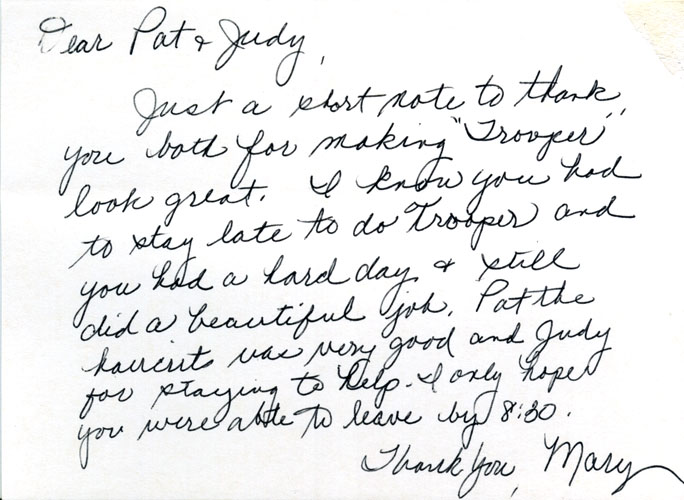 Dear Pat & Judy,
Just a short note to thank
you both for making "Trooper"
look great. I know you had
to stay late to do Trooper and
you had a hard day & still
did a beautiful job. Pat the
haircut was very good and Judy
for staying to help. I only hope
you were able to leave by 8:30.
Thank You, Mary